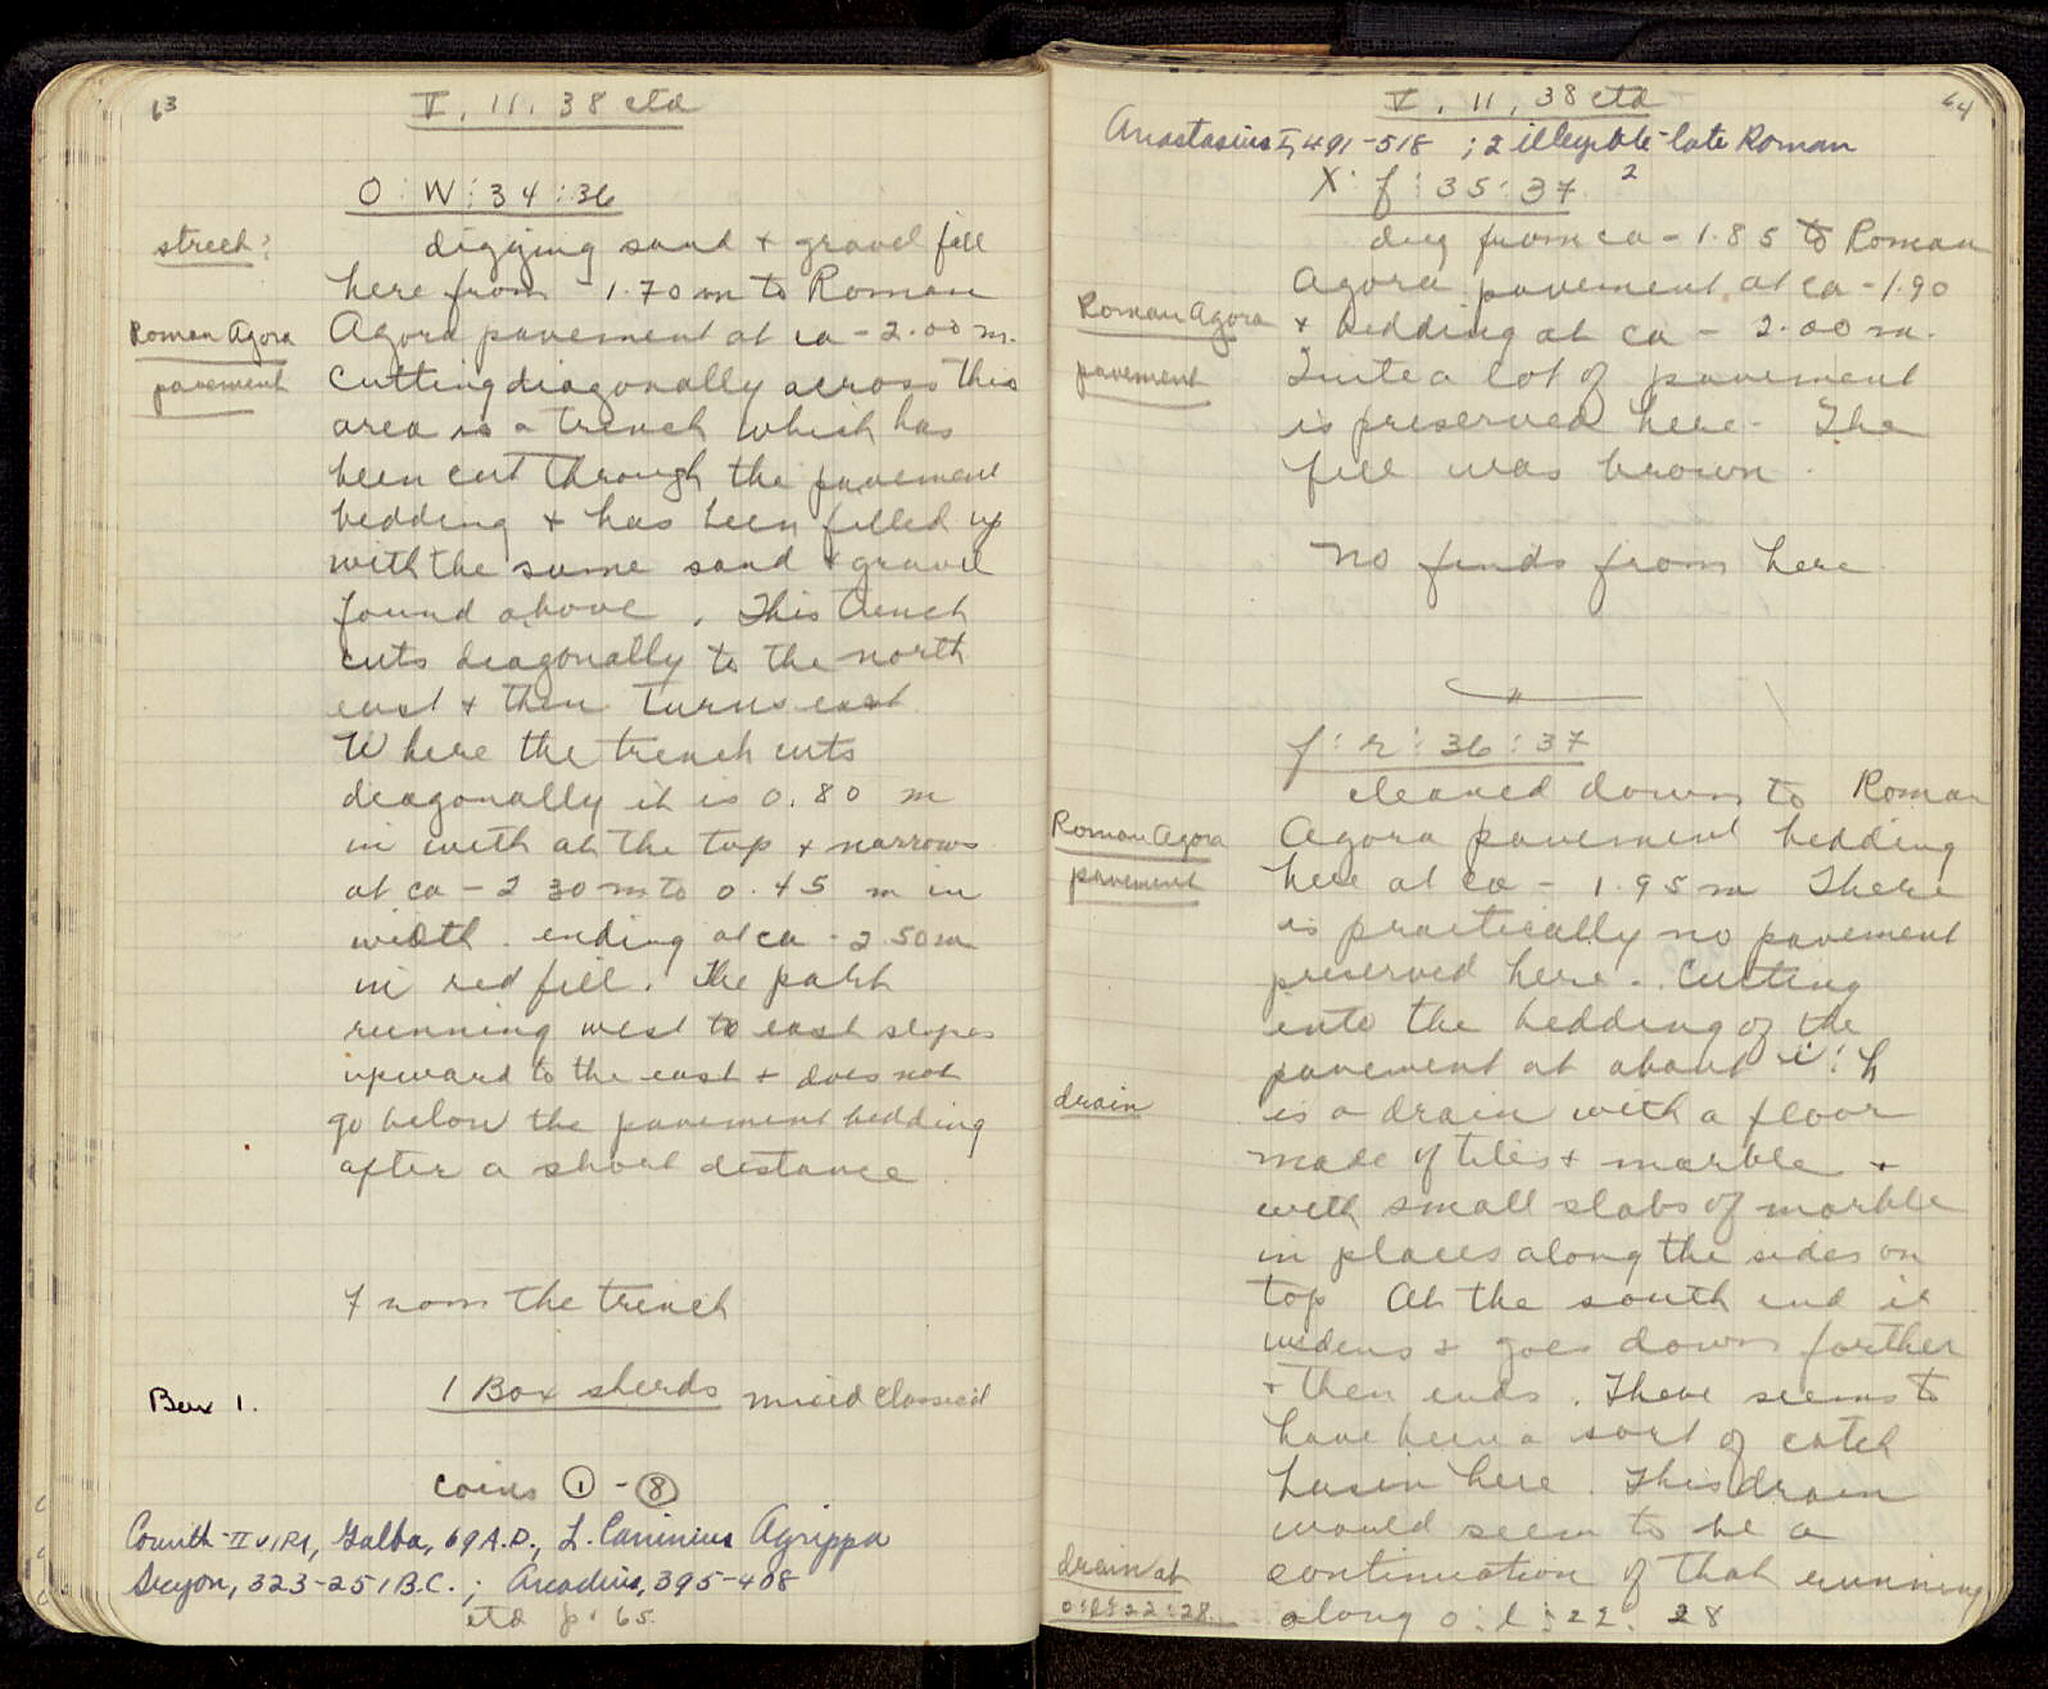 63
V, 11, 38 ctd
O : W : 34 : 36
street?
digging sand + gravel fill
here from - 1.70 m to Roman
Roman Agora
pavement
Agora pavement at ca - 2.00 m.
Cutting diagonally across this
area is a trench which has
been cut through the pavement
bedding + has been filled up
with the same sand + gravel
found above. This trench
cuts diagonally to the north
east + then turns east
Where the trench cuts
diagonally it is 0.80 m
in with at the top + narrows
at ca - 2 30 m to 0.45 m in
width. ending at ca - 2.50 m
in red fill. The part
running west to east slopes
upward to the east + does not
go below the pavement bedding
after a short distance
From the trench
Box 1.
1 Box sherds mixed Classical
coins ① - ⑧
Corinth - II VIRI, Galba, 69 A.D., L. Caninius Agrippa
Sicyon, 323-251 B.C. ; Arcadius, 395-408
ctd p. 65
64
V, 11, 38 ctd
Anastasius I, 491-518 ; 2 illegible - late Roman
X : f : 35 : 37 2
dug from ca - 1.85 to Roman
Agora pavement at ca - 1.90
Roman Agora
pavement
+ bedding at ca - 2.00 m.
Quite a lot of pavement
is preserved here. The
fill was brown.
No finds from here
f : r : 36 : 37
cleaned down to Roman
Roman Agora
pavement
Agora pavement bedding
here at ca - 1.95 m There
is practically no pavement
preserved here. Cutting
into the bedding of the
pavement at about i : h
drain
is a drain with a floor
made of tiles + marble +
with small slabs of marble
in places along the sides on
top At the south end it
widens + goes down further
+ then ends. There seems to
have been a sort of catch
basin here. This drain
would seem to be a
drain at
o : l : 22 : 28
continuation of that running
along o : l : 22 : 28